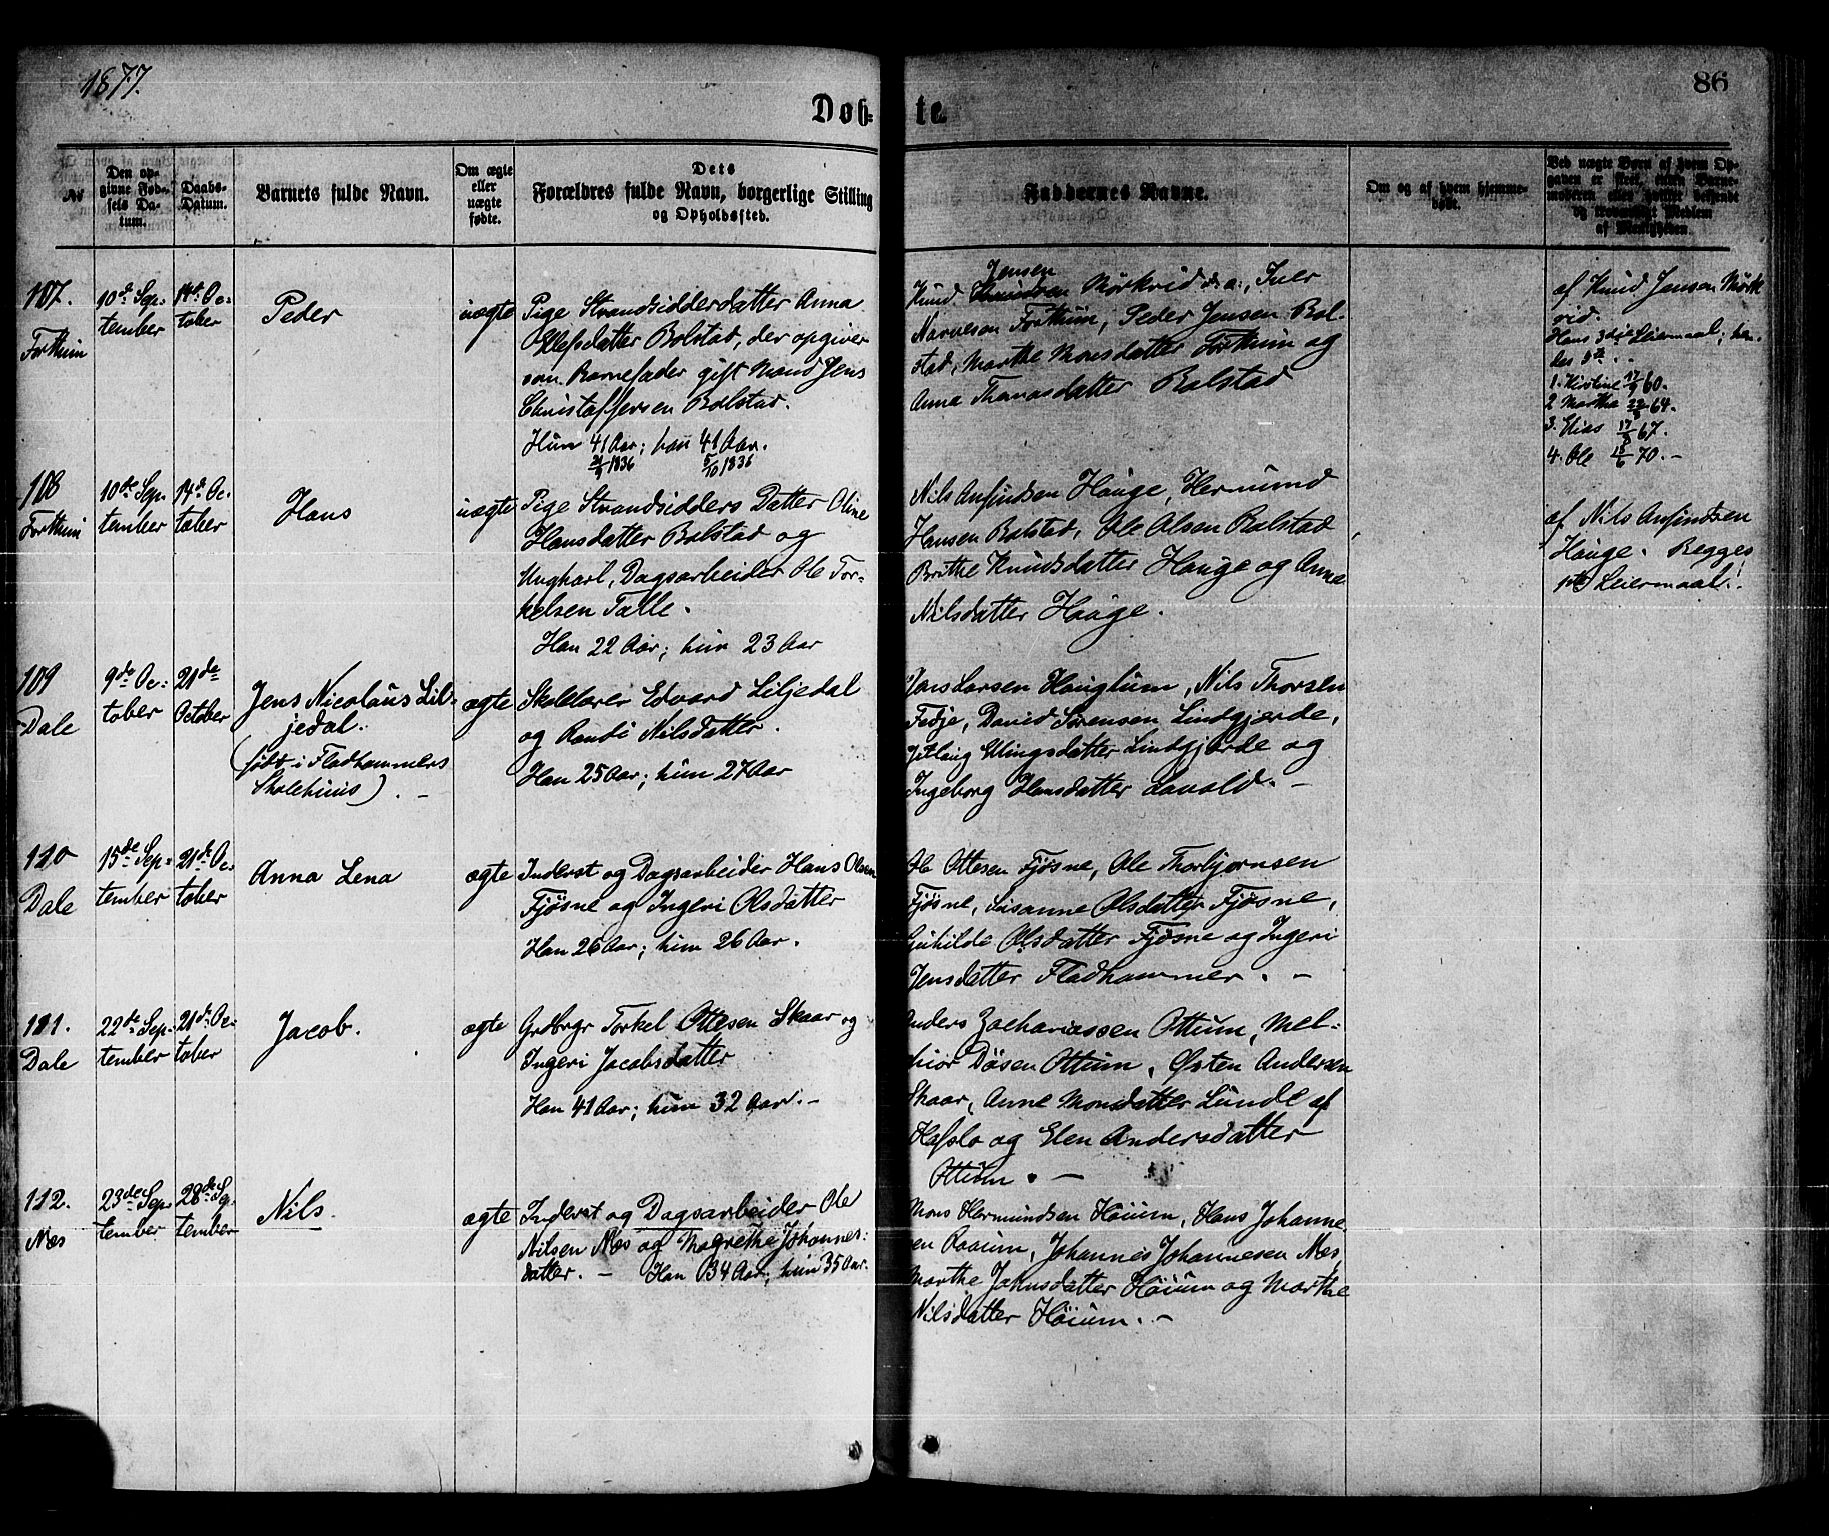 1877.
86
Døb-
te.
No
Den op-
givne Fød-
sels Da-
tum.
Daabs-
Datum.
Barnets fulde Navn.
Om ægte
eller
uægte
fødte.
Dets
Forældres fulde Navn, borgerlige Stilling
og Opholdssted.
Faddernes Navne.
Om og af hvem hjemme-
døbt.
Ved uægte Børn af hvem Op-
gaven er skeet, enten Barne-
moderen eller hvilket bekjendt
og troværdigt Medlem
af Menigheden.
107.
Forthun
10de Sep-
tember
14de Oc-
tober
Peder
uægte
Pige Strandsidderdatter Anna
Ellefsdatter Bolstad, der opgiver
som Barnefader gift Mand Jens
Christoffersen Bolstad.
Hun 41 Aar; han 41 Aar.
1836 5/10 1836
Knud Knudsen Jensen Mørkrid d. a., Iver
Narvesen Forthun, Peder Jensen Bol-
stad, Marthe Monsdatter Forthun og
Anna Thomasdatter Bolstad
af Knud Jensen Mørk
rid.
Hans 3die Leiermaal; hen-
des 5te
1. Kirstine 17/9 60.
2 Martha 22/8 64.
3. Elias 17/8 67.
4. Ole 15/6 70. –
108
Forthun
10de Sep-
tember
14de Oc-
tober
Hans
uægte
Pige Strandsidders Datter Oline
Hansdatter Bolstad og
Ungkarl, Dagsarbeider Ole Tor-
kelsen Talle.
Han 22 Aar; hun 23 Aar
Nils Anfindsen Hauge, Hermund
Hansen Bolstad, Ole Olsen Bolstad
Brithe Knudsdatter Hauge og Anne
Nilsdatter Hauge.
af Nils Anfindsen
Hauge. Begges
1ste Leiermaal!
109
Dale
9de Oc-
tober
21de
October
Jens Nicolaus Lil-
jedal.
(født i Fladhammers
Skolehuus). –
ægte
Skolelærer Edvard Liljedal
og Randi Nilsdatter.
Han 25 Aar; hun 27 Aar
Jens Larsen Hauglum, Nils Thorsen
Fedje, David Sørensen Lindgjerde,
Ellingsdatter Lindgjerde og
Ingeborg Hansdatter Lavold. –
110
Dale
15de Sep-
tember
21de Oc-
tober
Anna Lena
ægte
Inderst og Dagsarbeider Hans Olsen
Fjøsne og Ingeri Olsdatter
Han 26 Aar; hun 26 Aar.
Ole Ottesen Fjøsne, Ole Thorbjørnsen
Fjøsne, Susanne Olsdatter Fjøsne,
Guhilde Olsdatter Fjøsne og Ingeri
Jensdatter Fladhammer. –
111.
Dale
22de Sep-
tember
21de Oc-
tober
Jacob.
ægte
Grdbrgr Torkel Ottesen Skaar og
Ingeri Jacobsdatter
Han 41 Aar; hun 32 Aar. –
Anders Zachariassen Ottum, Mel-
kior Døsen Ottum, Østen Andersen
Skaar, Anne Monsdatter Lunde af
Hafslo og Elen Andersdatter
Ottum. –
112.
Næs
23de Sep-
tember
28de Sep-
tember
Nils.
ægte
Inderst og Dagsarbeider Ole
Nilsen Næs og Magrethe Johannes-
datter. – Han 34 Aar; hun 35 Aar.
Mons Hermundsen Høium, Hans Johanne
en Raaum, Johannes Johannesen Næs,
Marthe Jakusdatter Høium og Marthe
Nilsdatter Høium. –